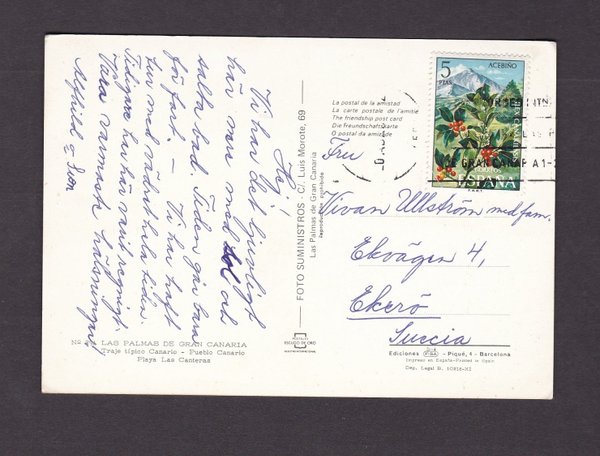 Hej!
Vi har det ljuvligt
här nere med sol och
salta bad. Tiden går bara
för fort — Vi har haft
tur med vädret hela tiden.
Tidigare har här varit regnigt.
Våra varmaste hälsningar!
No
LAS PALMAS DE GRAN CANARIA
Traje típico Canario - Pueblo Canario
Playa Las Canteras
FOTO SUMINISTROS - C/. Luis Morote, 69
Las Palmas de Gran Canaria
Reproducción prohibida
POSTALES
ESCUDO DE ORO
La postal de la amistad
La carte postale de l'amitié
The friendship post card
Die Freundschaftskarte
O postal da amizade
5
PTAS
ACEBIÑO
CORREOS
ESPAÑA
GRAN CANARIA
Fru
Vivan Ullström med fam.
Ekvägen 4,
Ekerö
Suecia
Ediciones FISA - Piqué, 4 - Barcelona
Impreso en España - Printed in Spain
Dep. Legal B. 10916-XI